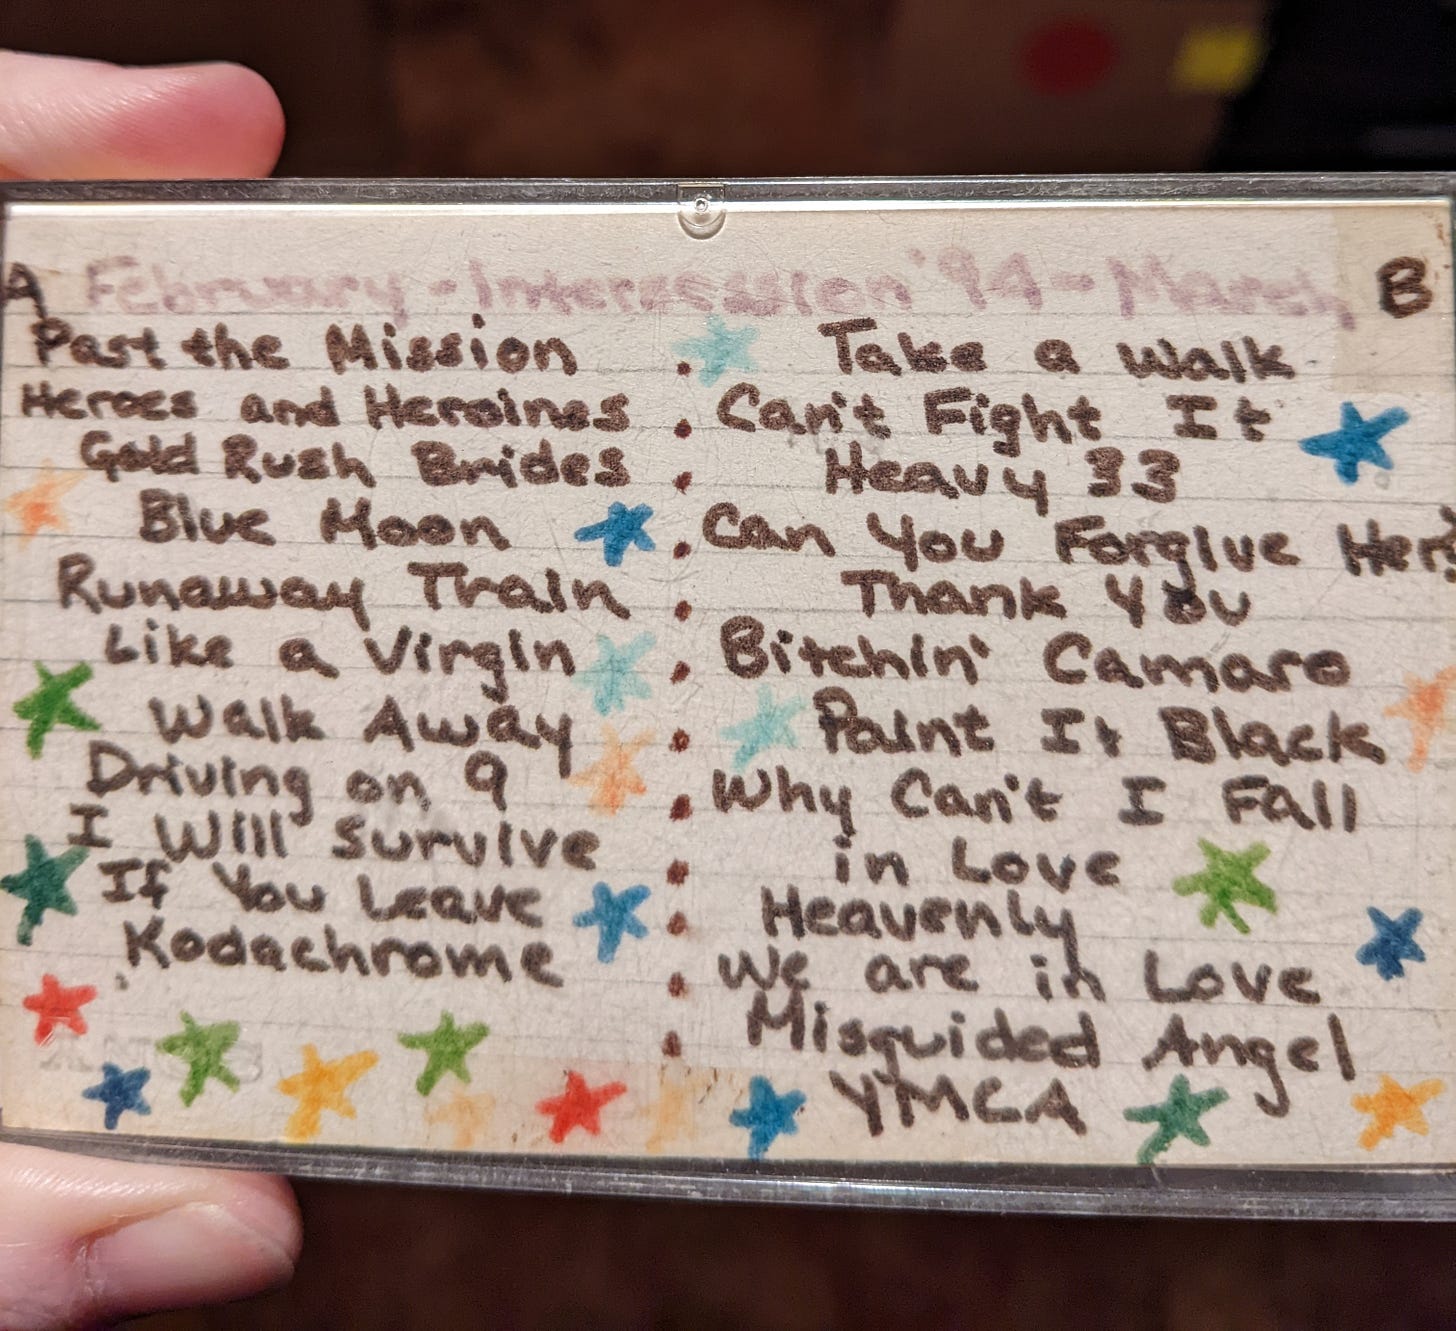 A February - Intersession '94 - March B
Past the Mission
Heroes and Heroines
Gold Rush Brides
Blue Moon
Runaway Train
Like a Virgin
Walk Away
Driving on 9
I Will Survive
If You Leave
Kodachrome
Take a Walk
Can't Fight It
Heavy 33
Can You Forgive Her?
Thank You
Bitchin' Camaro
Paint It Black
Why Can't I Fall
in Love
Heavenly
We are in Love
Misguided Angel
YMCA